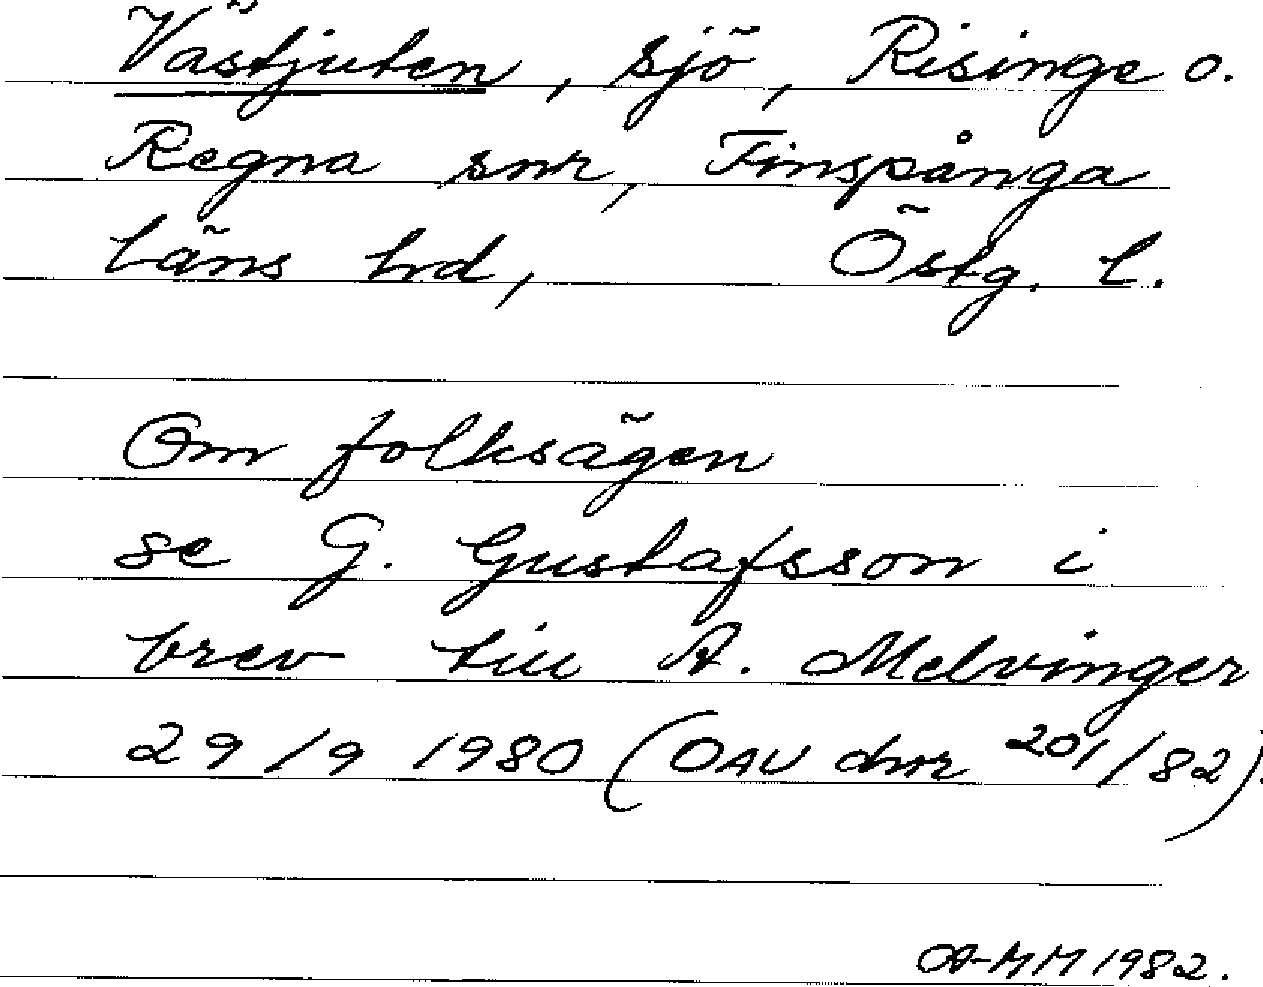 Västjuten, sjö, Risinge o.
Regna snr, Finspånga
läns hd, Östg. l.
Om folksägen
se G. Gustafsson i
brev till A. Melvinger
29/9 1980 (OAU dnr 201/82).
1982.